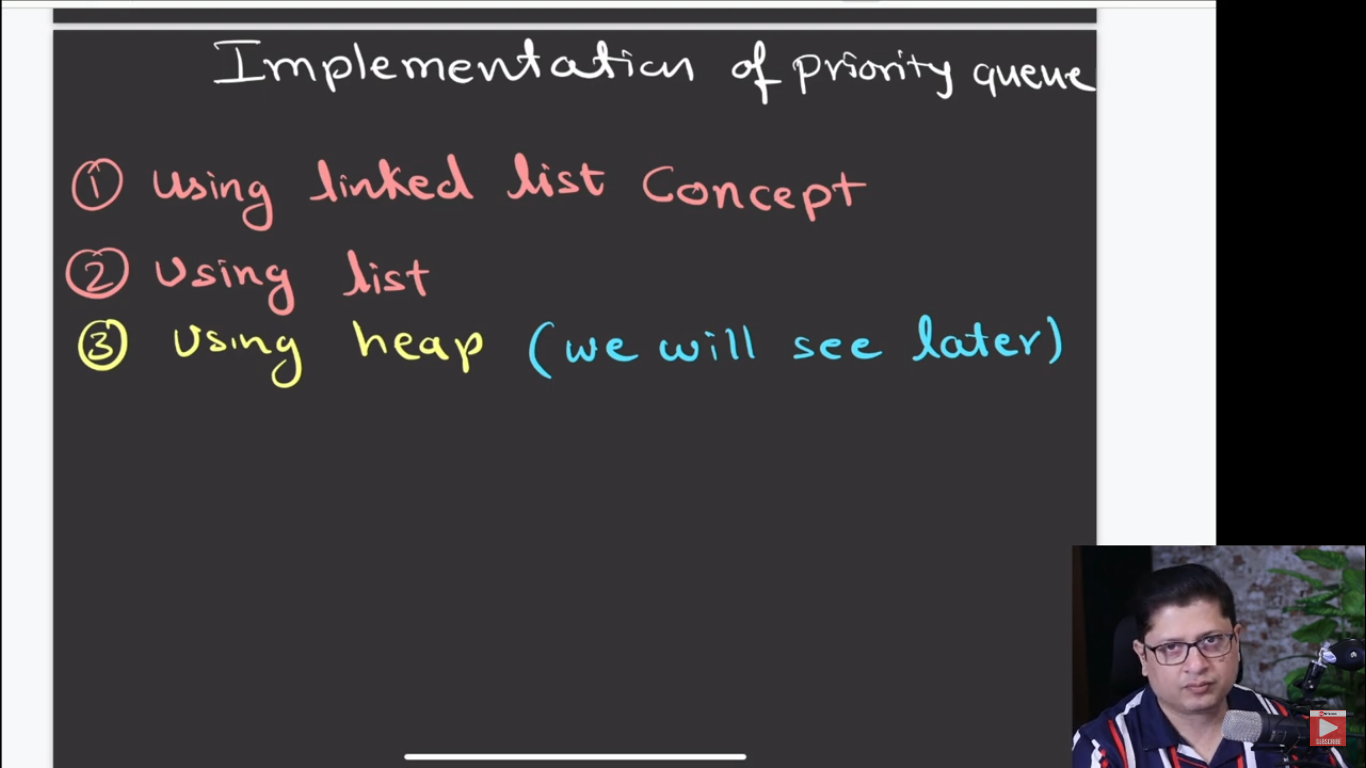 Implementation of priority queue
① Using linked list Concept
② Using list
③ Using heap (we will see later)
SUBSCRIBE